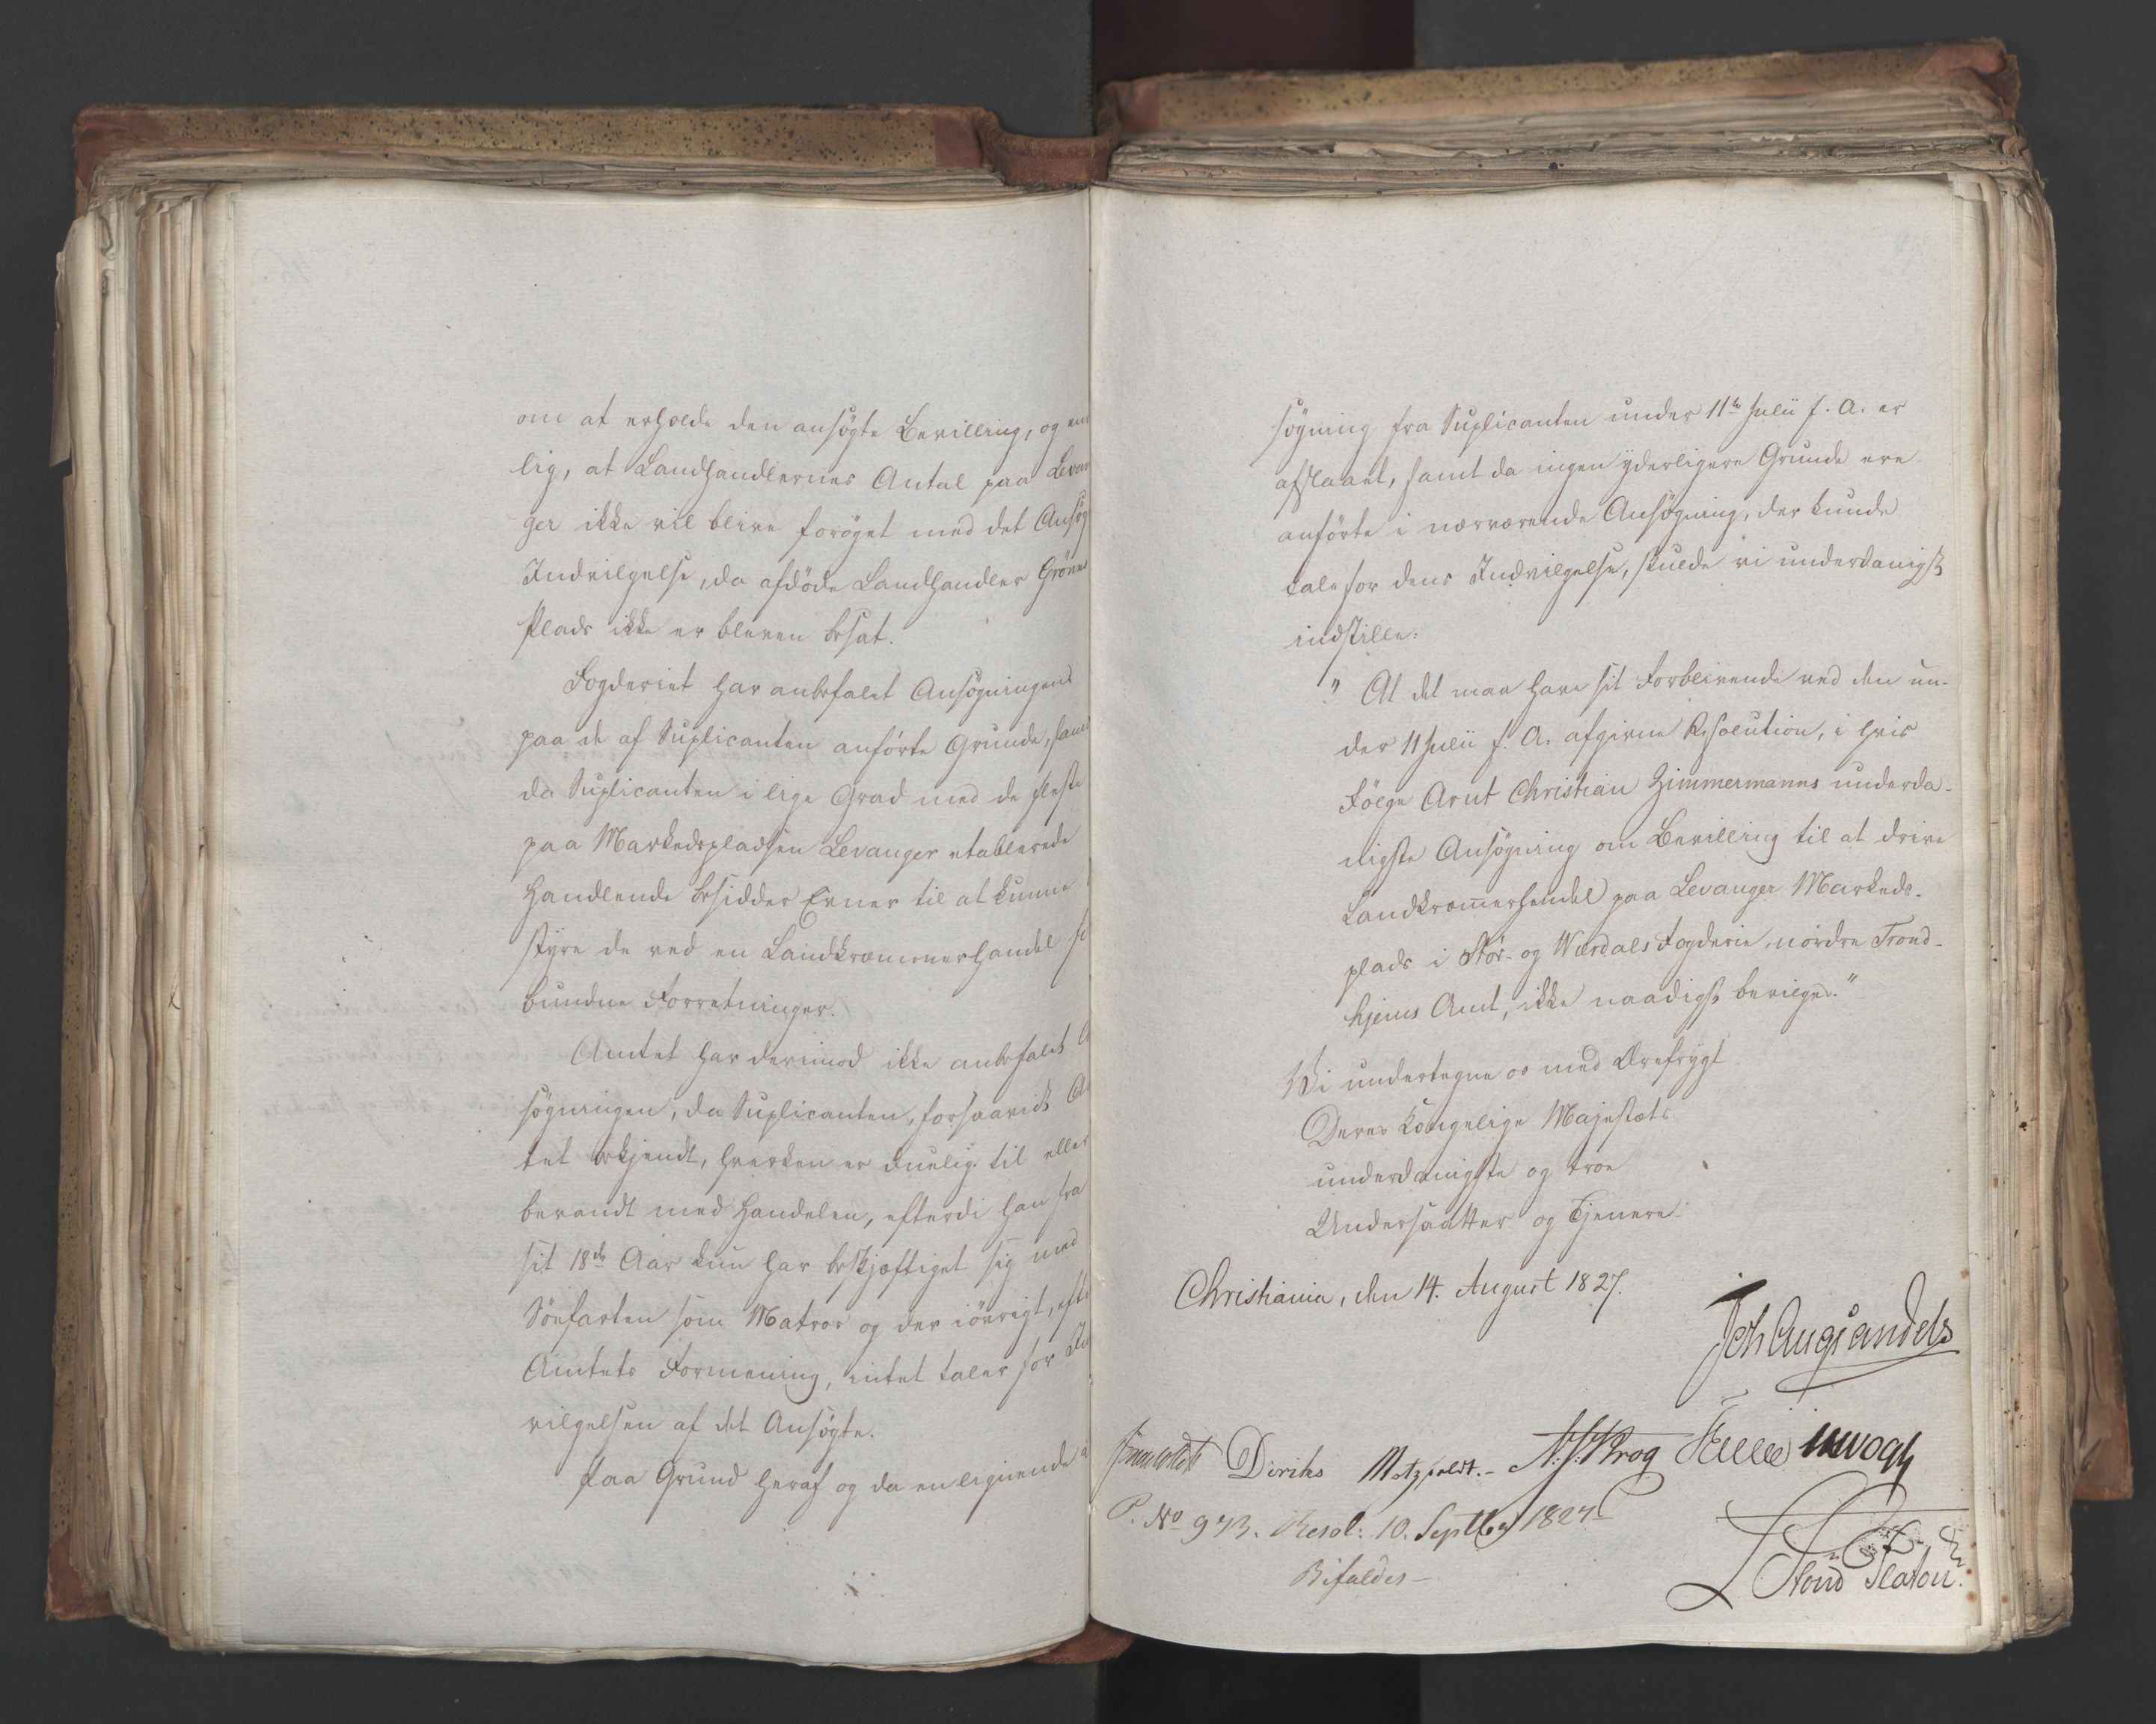 om at erholde den ansøgte Bevilling, og en
lig, at Landhandlernes Antal paa Levan
ger ikke vil blive forøget med det Ansøg
Indvilgelse, da afdøde Landhandler Grønns
Plads ikke er bleven besat.
Fogderiet har anbefalet Ansøgningen
paa de af Suplicanten anførte Grunde, samt
da Suplicanten i lige Grad med de fleste
paa Markedspladsen Levanger etablerede
Handlende besidder Evner til at kunne
styre de ved en Landkrammerhandel f
bundne Forretninger.
Amtet har derimod ikke anbefalet A
søgningen, da Suplicanten, forsaavidt Am
tet bekjendt, hverken er duelig til eller
bevandt med Handelen, efterdi han fra
sit 18de Aar kun har beskjæftiget sig med
Søefarten som Matros og der iøvrigt, efter
Amtets Formening, intet taler for Ind
vilgelsen af det Ansøgte.
Paa Grund heraf og da en lignende A
søgning fra Suplicanten under 11te Julii f. A. er
afslaaet, samt da ingen yderligere Grunde ere
anførte i nærværende Ansøgning, der kunde
tale for dens Indvilgelse, skulde vi underdanigst
indstille:
" At det maa have sit Forblivende ved den un-
der 11 Julii f. A. afgivne Resolution, i hvis
Følge Arnt Christian Zimmermanns underda-
nigste Ansøgning om Bevilling til at drive
Landkramerhandel paa Levanger Markeds-
plads i Stør- og Værdals Fogderie, nordre Trond-
hjems Amt, ikke naadigst beviliges."
Vi undertegne os med Ærefrygt
Deres Kongelige Majestæts
underdanigste og troe
Undersaatter og Tjenere.
Christiania, den 14. August 1827.
Joh Aug Sandels
Diriks Motzfeldt.- A.S. Krog JHVogt
P. No 973. Resol: 10. Septbr 1827
Bifaldes-